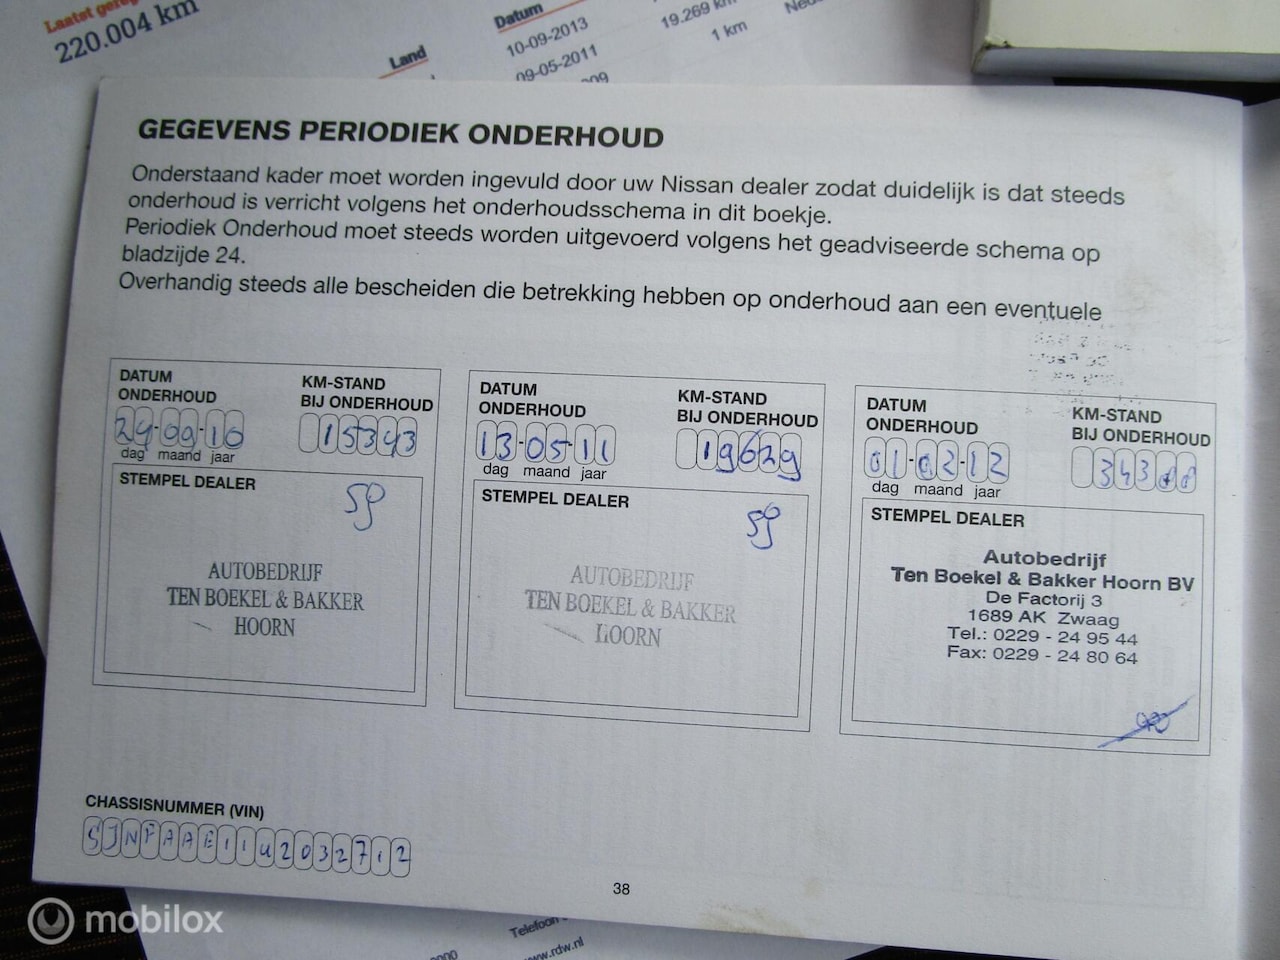 220.004 km
Land
Datum
10-09-2013
09-05-2011
19.269 km
1 km
GEGEVENS PERIODIEK ONDERHOUD
Onderstaand kader moet worden ingevuld door uw Nissan dealer zodat duidelijk is dat steeds
onderhoud is verricht volgens het onderhoudsschema in dit boekje.
Periodiek Onderhoud moet steeds worden uitgevoerd volgens het geadviseerde schema op
bladzijde 24.
Overhandig steeds alle bescheiden die betrekking hebben op onderhoud aan een eventuele
DATUM
ONDERHOUD
KM-STAND
BIJ ONDERHOUD
15343
dag maand jaar
STEMPEL DEALER
AUTOBEDRIJF
TEN BOEKEL & BAKKER
HOORN
DATUM
ONDERHOUD
KM-STAND
BIJ ONDERHOUD
13-05-11
19629
dag maand jaar
STEMPEL DEALER
AUTOBEDRIJF
TEN BOEKEL & BAKKER
HOORN
DATUM
ONDERHOUD
KM-STAND
BIJ ONDERHOUD
01-02-12
dag maand jaar
STEMPEL DEALER
Autobedrijf
Ten Boekel & Bakker Hoorn BV
De Factorij 3
1689 AK Zwaag
Tel.: 0229 - 24 95 44
Fax: 0229 - 24 80 64
CHASSISNUMMER (VIN)
SJNFAAE11U2032712
38
mobilox
Telefoon
www.rdw.nl